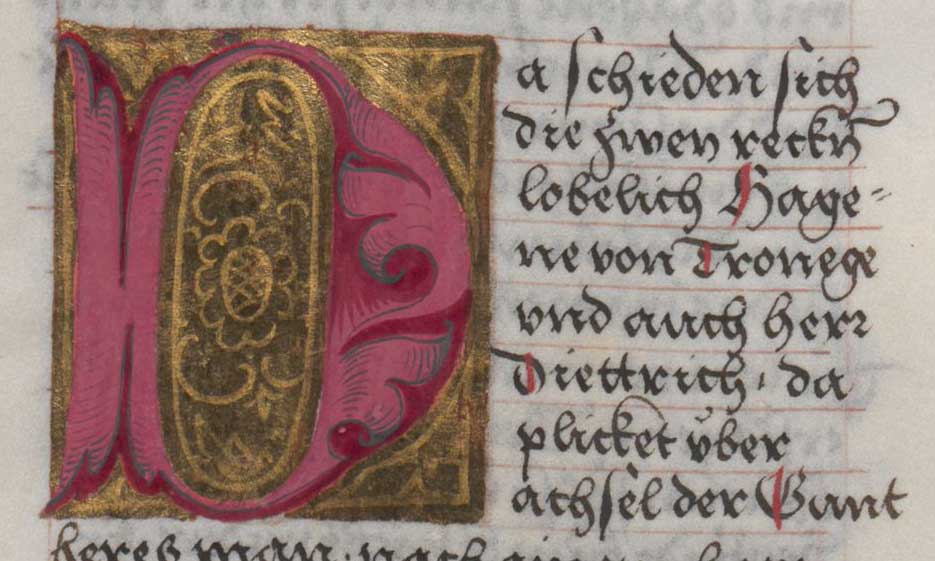 Da schieden sich
die zwen reckn̄
lobelich Hage-
ne von Tronege
vnd auch herr
Diettrich, da
plicket v̈ber
achsel der Gunt
heres man, nach